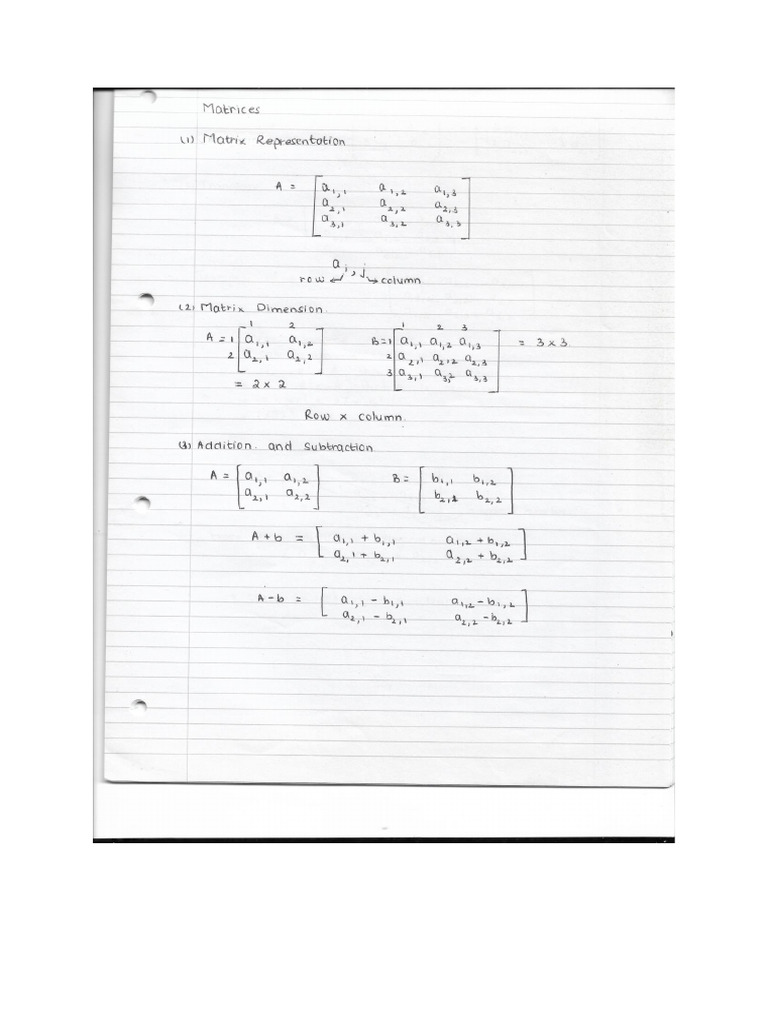 Matrices
(1) Matrix Representation
A = [ a1,1 a1,2 a1,3
a2,1 a2,2 a2,3
a3,1 a3,2 a3,3 ]
ai,j
row ↙ ↘ column
(2) Matrix Dimension.
1 2 1 2 3
A = 1 [ a1,1 a1,2 ] B = 1 [ a1,1 a1,2 a1,3 ] = 3 x 3
2 [ a2,1 a2,2 ] 2 [ a2,1 a2,2 a2,3 ]
3 [ a3,1 a3,2 a3,3 ]
= 2 x 2
Row x column.
(3) Addition. and Subtraction
A = [ a1,1 a1,2 ] B = [ b1,1 b1,2 ]
[ a2,1 a2,2 ] [ b2,1 b2,2 ]
A + b = [ a1,1 + b1,1 a1,2 + b1,2 ]
[ a2,1 + b2,1 a2,2 + b2,2 ]
A - b = [ a1,1 - b1,1 a1,2 - b1,2 ]
[ a2,1 - b2,1 a2,2 - b2,2 ]